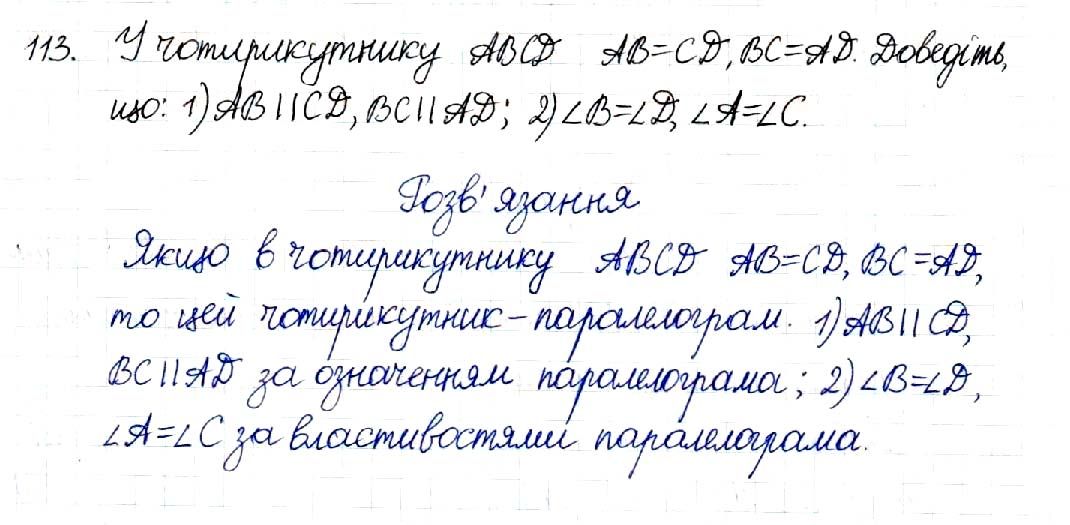 113. У чотирикутнику ABCD AB=CD, BC=AD. Доведіть,
що: 1) AB||CD, BC||AD; 2) ∠B=∠D, ∠A=∠C.
Розв'язання
Якщо в чотирикутнику ABCD AB=CD, BC=AD,
то цей чотирикутник-паралелограм. 1) AB||CD,
BC||AD за означенням паралелограма; 2) ∠B=∠D,
∠A=∠C за властивостями паралелограма.